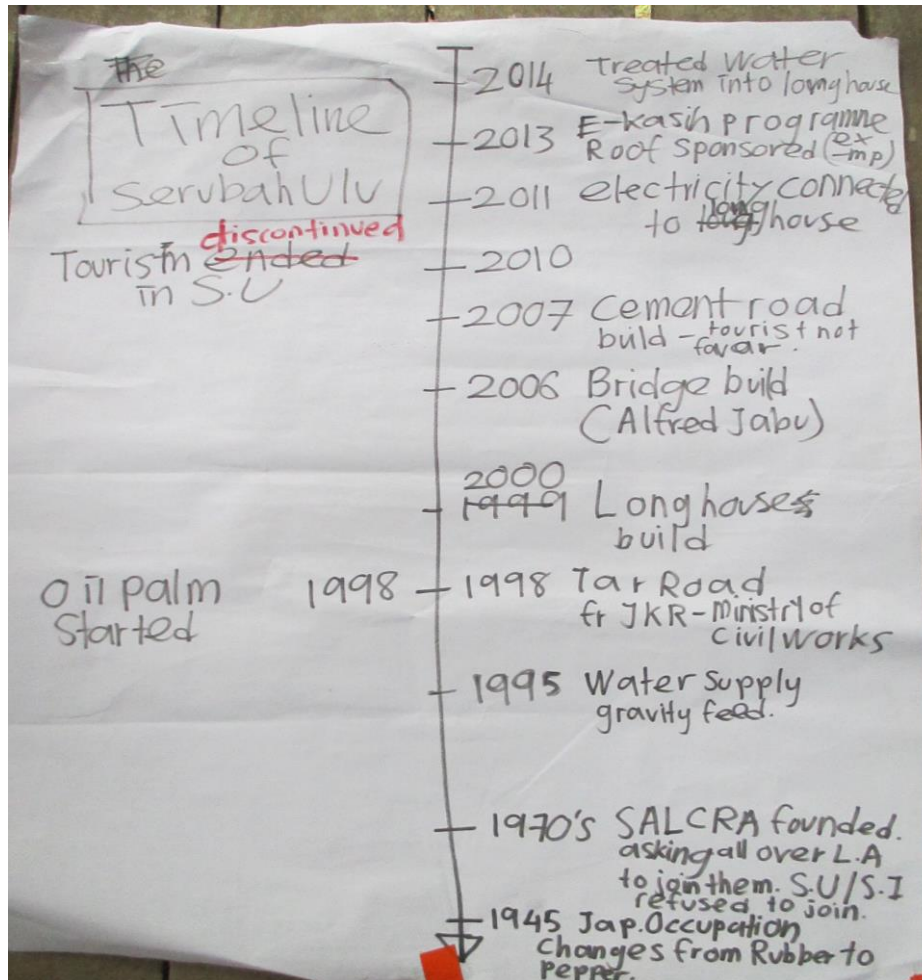 The
Timeline
of
Serubah Ulu
discontinued
Tourism ended
in S.U
2014 Treated Water
System into longhouse
2013 E-kasih programme
Roof Sponsored (ex
-mp)
2011 electricity connected
to long house
2010
2007 Cement road
build - tourist not
favar.
2006 Bridge build
(Alfred Jabu)
2000
1999 Longhouses
build
Oil palm 1998
Started
1998 Tar Road
fr JKR - Ministry of
Civil Works
1995 Water Supply
gravity feed.
1970's SALCRA founded.
asking all over L.A
to join them. S.U/S.I
refused to join.
1945 Jap. Occupation
Changes from Rubber to
Pepper.